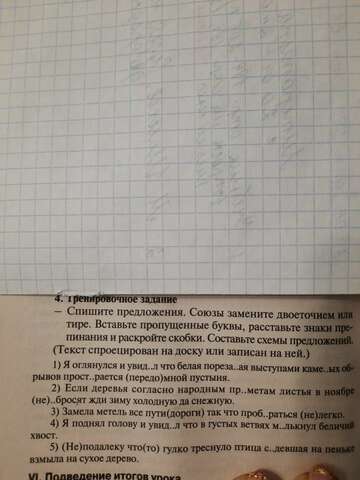 4. Тренировочное задание
– Спишите предложения. Союзы замените двоеточием или
тире. Вставьте пропущенные буквы, расставьте знаки пре-
пинания и раскройте скобки. Составьте схемы предложений.
(Текст спроецирован на доску или записан на ней.)
1) Я оглянулся и увид..л что белая пореза..ая выступами каме..ых об-
рывов прост..рается (передо)мной пустыня.
2) Если деревья согласно народным пр..метам листья в ноябре
(не)..бросят жди зиму холодную да снежную.
3) Замела метель все пути(дороги) так что проб..раться (не)легко.
4) Я поднял голову и увид..л что в густых ветвях м..лькнул беличий
хвост.
5) (Не)подалеку что(то) гулко треснуло птица с..девшая на пеньке
взмыла на сухое дерево.
VI. Подведение итогов урока